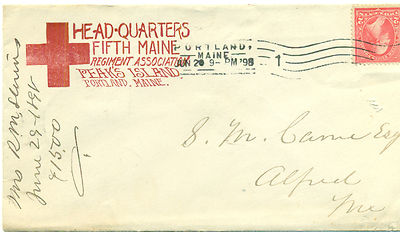 HEAD-QUARTERS
FIFTH MAINE
REGIMENT ASSOCIATION
PEAK'S ISLAND
PORTLAND, MAINE.
PORTLAND,
MAINE
JUN 29 9-PM '98
1
S. M. Came Esq
Alfred
Me
Mrs R M
June 29-1898